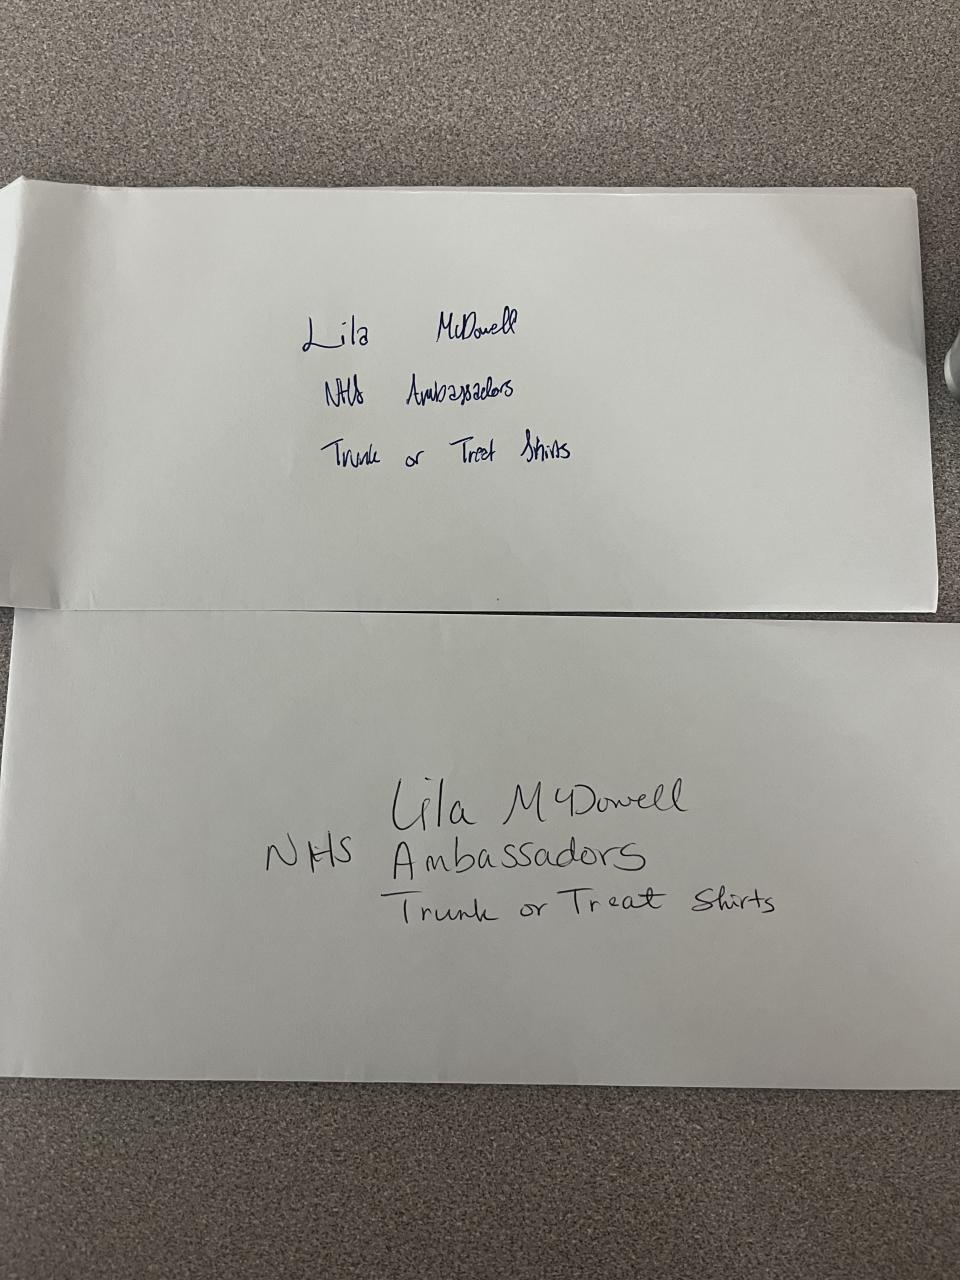 Lila McDowell
NHS Ambassadors
Trunk or Treat Shirts
Lila McDowell
NHS Ambassadors
Trunk or Treat Shirts